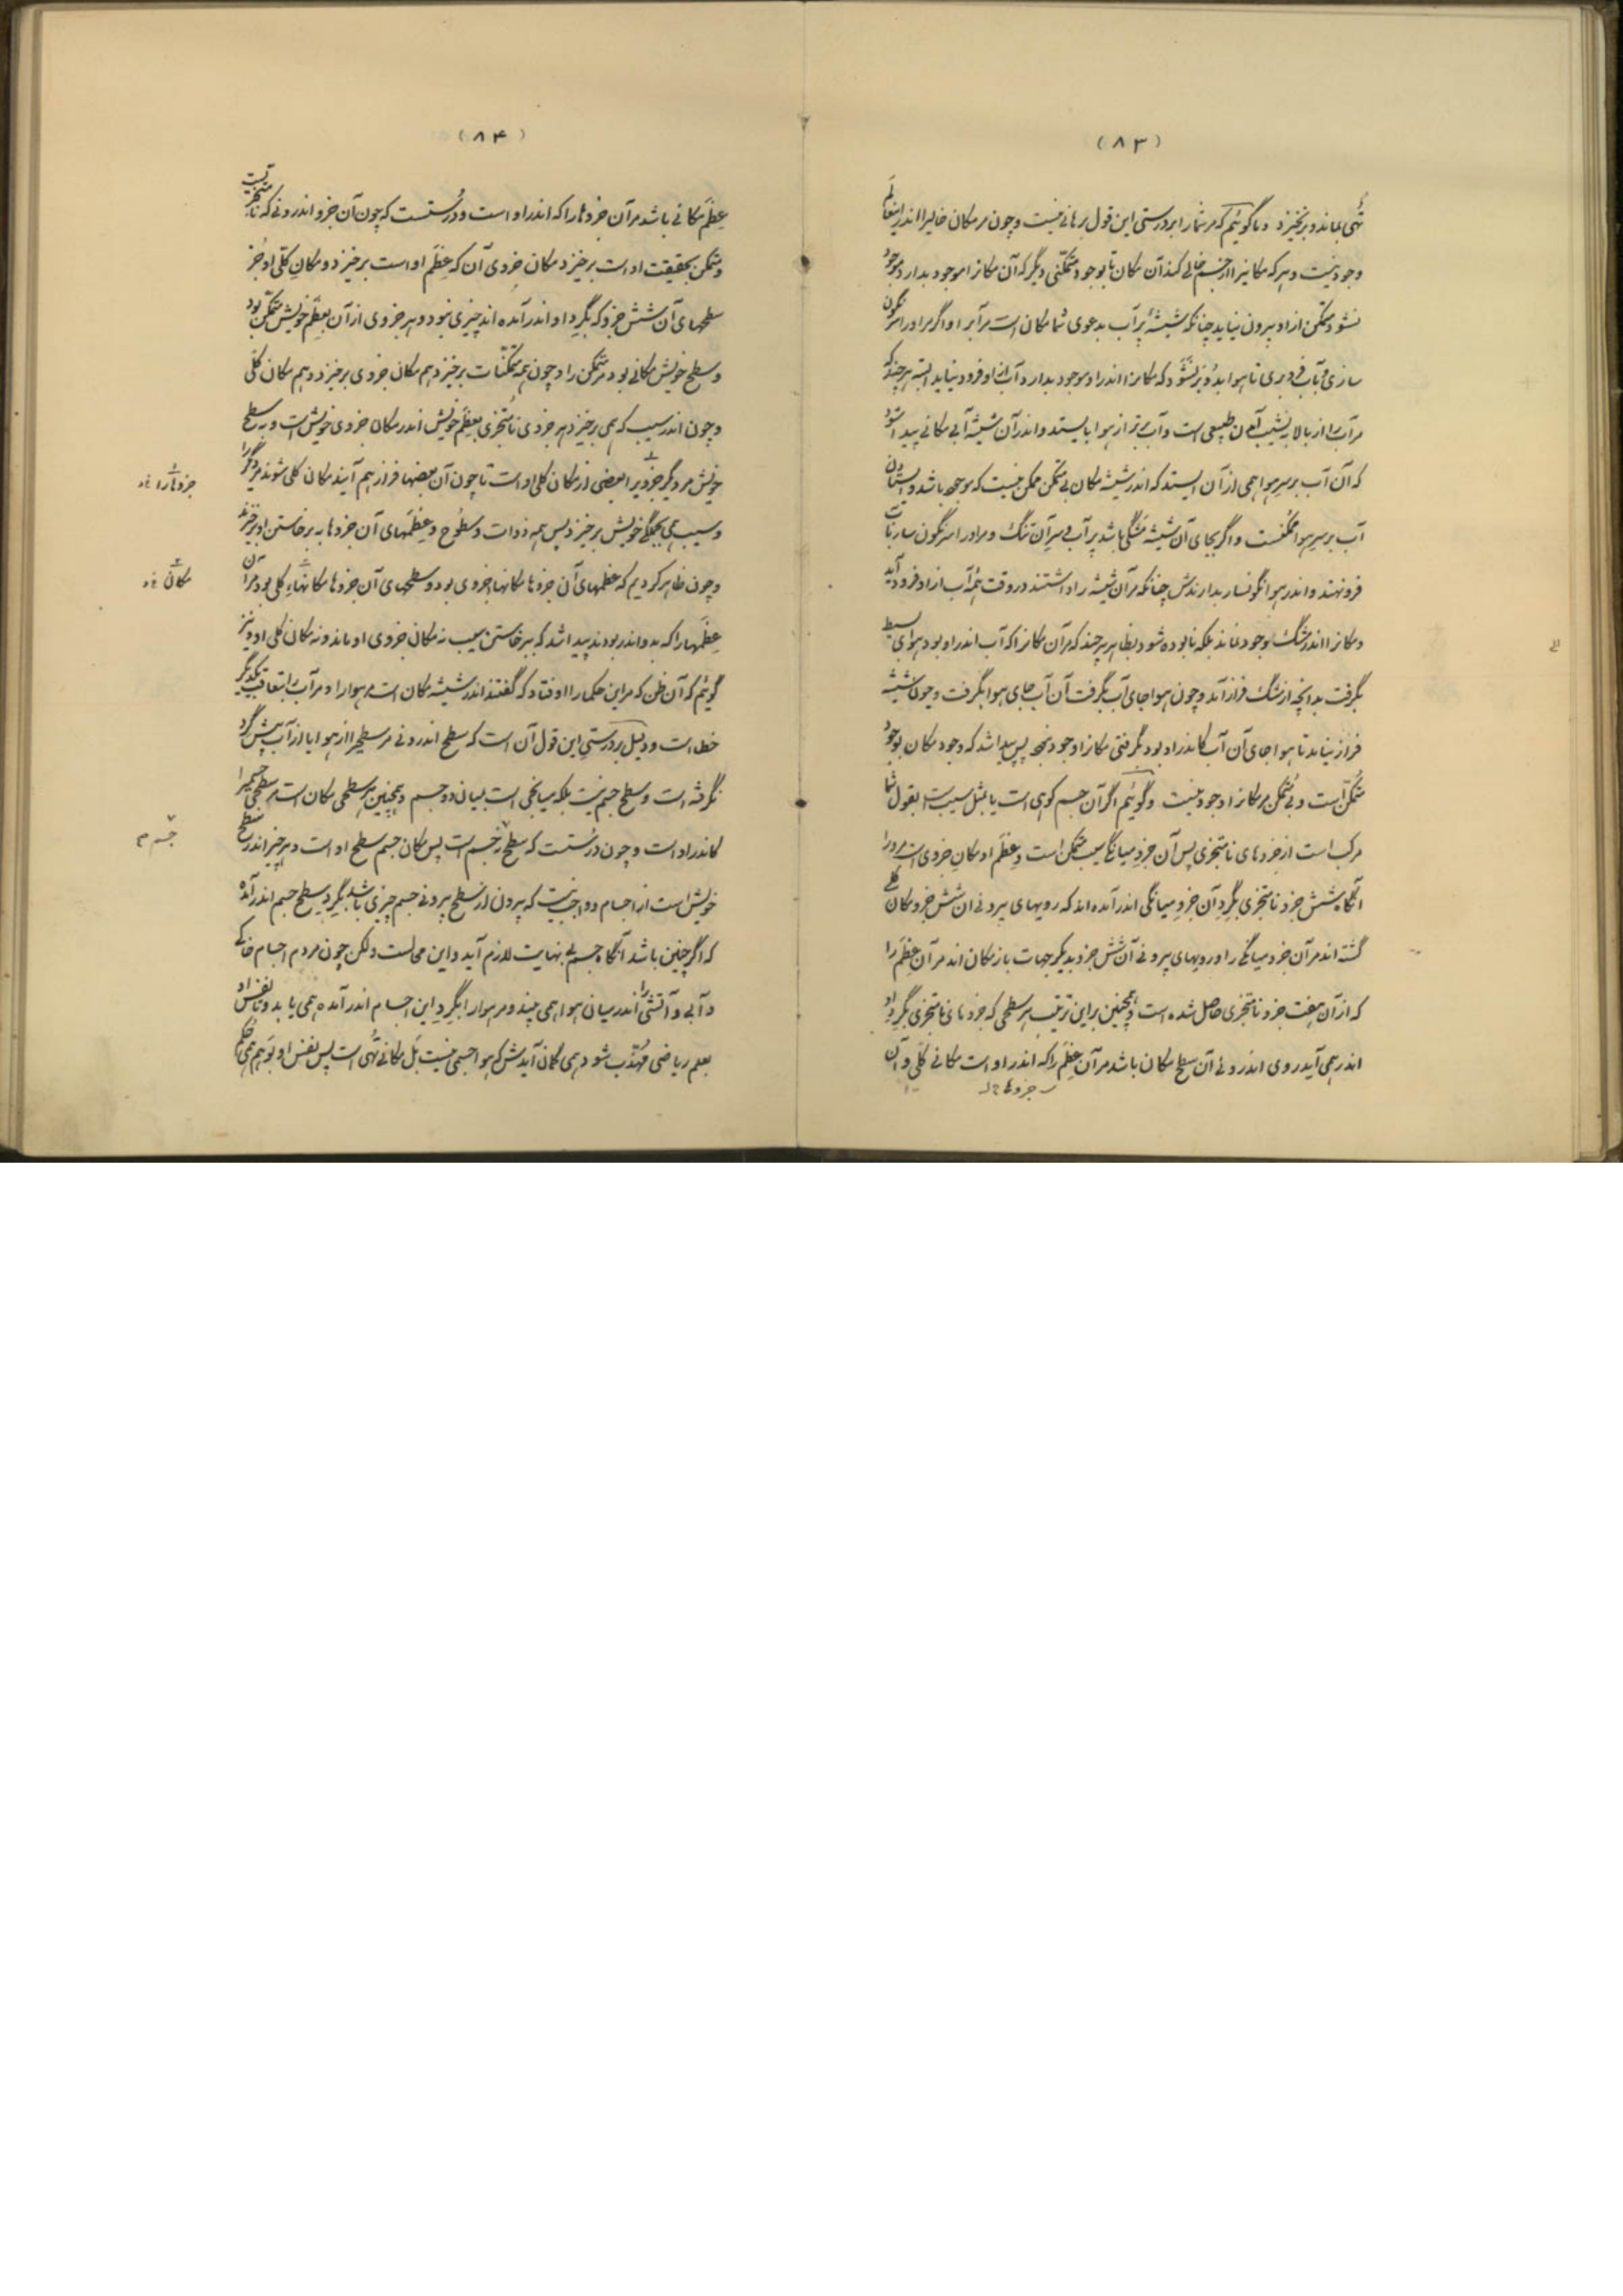 (۸۳)
تهی بماند و برنخیزد و ما گوئیم که مر شما را بر درستی این قول برهانی نیست و چون مر مکان خالیرا اندر اینعالم
وجود نیست و هر که مکانیرا از جسم خالی کند آن مکان تا بوجود متمکنی دیگر که آن مکانرا موجود بدارد موجود
نشود متمکن ازاو بیرون نیاید چنانکه شیشهٔ پر آب بدعوی شما مکان است مر آبرا و اگر مر اورا سرنگون
سازی و بآب فرو بری تا هوا بدو بر نشود که مکانرا اندر او موجود بدارد آب ازاو فرود نیاید البته هر چند که
مر آب را از بالا به نشیب آمدن طبیعی است و آب برتر از هوا بایستد و اندر آن شیشه آبی مکانی پیدا شود
که آن آب بر سر هوا همی ازآن ایستد که اندر شیشه مکان بی متمکن ممکن نیست که موجود باشد و ایستادن
آب بر سر هوا ممکنست و اگر بجای آن شیشه مشگی باشد پر آب و سر آن تنگ و مر اورا سرنگون سار بآب
فرو نهند و اندر هوا نگونسار بدارندش چنانکه مر آن شیشه را داشتند در وقت همه آب ازاو فرود آید
و مکانرا اندر مشگ وجود نماند بلکه نابوده شود بظاهر هر چند که مر آن مکانرا که آب اندر او بود هوای بسیط
بگرفت بدانچه از مشگ فراز آمد و چون هوا جای آب بگرفت آن آب جای هوا بگرفت و چون شیشه
فراز نیاید تا هوا جای آن آب کاندر او بود بگرفتی مکانرا وجود نبود پس پیدا شد که وجود مکان بوجود
متمکن است و بی متمکن مر مکانرا وجود نیست و گوئیم اگر آن جسم کوهی است یا بمثل سیب است بقول شما
مرکب است از جزوهای نامتجزی پس آن جزو میانگی سیب متمکن است و عظم او مکان جزوی است مر ورا
آنگاه شش جزو نامتجزی بگرد آن جزو میانگی اندر آمده اند که رویهای بیرونی ان شش جزو مکان کلی
گشته اند مر آن جزو میانگی را و رویهای بیرونی آن شش جزو بدیگر جهات باز مکان اند مر آن عظم را
که از آن هفت جزو نامتجزی حاصل شده است و همچنین بر این ترتیب هر سطحی که جزوهای نامتجزی بگرد او
اندر همی آید روی اندرونی آن سطح مکان باشد مر آن عظم را که اندر او است مکانی کلی و آن
(۸۴)
عظم مکانی باشد مر آن جزوها را که اندر او است و درستست که چون آن جزو اندرونی که نامتجزیست
و متمکن بحقیقت او است برخیزد مکان جزوی آن که عظم او است برخیزد و مکان کلی او جز
سطحهای آن شش جزو که بگرد او اندر آمده اند چیزی نبود و هر جزوی از آن بعظم خویش متمکن بود
و سطح خویش مکانی بود مر متمکن را و چون همه متمکنات برخیزد هم مکان جزوی برخیزد و هم مکان کلی
و چون اندر سیب که همی برخیزد هر جزوی نامتجزی بعظم خویش اندر مکان جزوی خویش است و به سطح
خویش مر دیگر جزویرا بعضی از مکان کلی او است تا چون آن بعضها فراز هم آیند مکان کلی شوند مر دیگر را
و سیب همی بجملگی خویش برخیزد پس همه ذوات و سطوح و عظمهای آن جزوها به برخاستن او برخیزند
و چون ظاهر کردیم که عظمهای آن جزوها مکانها جزوی بود و سطحهای آن جزوها مکانهاء کلی بود مر آن
عظمها را که بدو اندر بودند پیدا شد که ببرخاستن سیب نه مکان جزوی او ماند و نه مکان کلی او و نیز
گوئیم که آن ظن که مر این حکما را اوفتاد که گفتند اندر شیشه مکان است مر هوا را و مر آب را بتعاقب یکدیگر
خطا است و دلیل بر درستی این قول آن است که سطح اندرونی مر سطحیرا از هوا یا از آب بیش گرد
نگرفته است و سطح جسم نیست بلکه میانجی است بمیان دو جسم و همچنین هر سطحی مکان است مر سطحی جسمیرا
کاندر او است و چون درستست که سطح نه جسم است پس مکان جسم سطح او است و هر چیز اندر سطح
خویش است از اجسام و واجب نیست که بیرون از سطح بیرونی جسم چیزی باشد بگرد سطح جسم اندر آمده
که اگر چنین باشد آنگاه جسم بی نهایت لازم آید و این محالست ولکن چون مردم اجسام خاکی
و آبی و آتشی را اندر میانی هوا همی بیند و مر هوا را بگرد این اجسام اندر آمده همی یابد و تا نفس او
بعلم ریاضی مهذب شود همی گمان آیدش که هوا جسمی نیست بل مکانی تهی است پس نفس او بوهم همی حکم
جزوها را
مکان
جسم